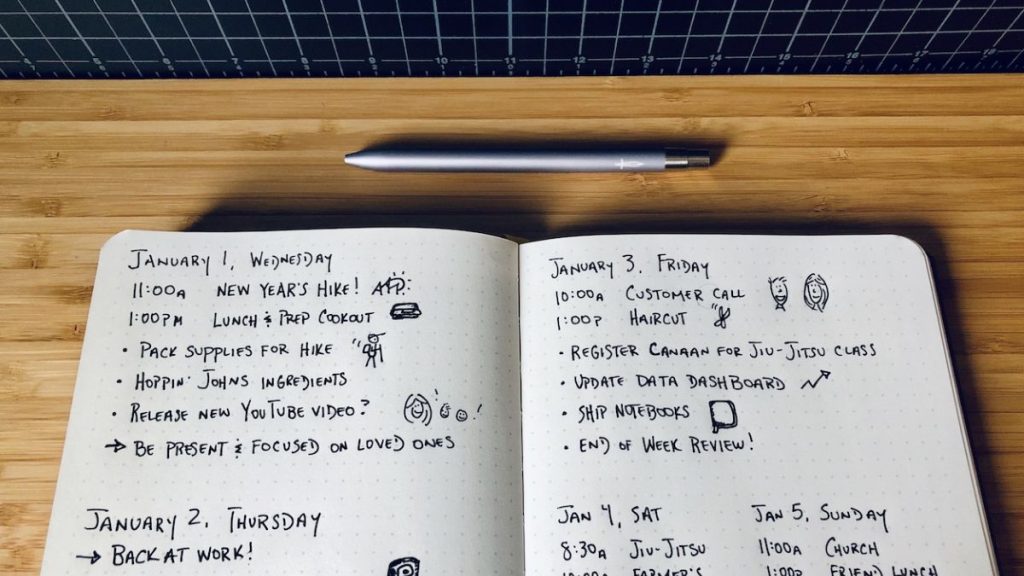 4 5 6 7 8 9 10 11 12 13 14 15 16 17 18 19
JANUARY 1, WEDNESDAY
11:00A NEW YEAR'S HIKE!
1:00PM LUNCH & PREP COOKOUT
• PACK SUPPLIES FOR HIKE
• HOPPIN' JOHNS INGREDIENTS
• RELEASE NEW YOUTUBE VIDEO?
→ BE PRESENT & FOCUSED ON LOVED ONES
JANUARY 2, THURSDAY
→ BACK AT WORK!
JANUARY 3, FRIDAY
10:00A CUSTOMER CALL
1:00P HAIRCUT
• REGISTER CANAAN FOR JIU-JITSU CLASS
• UPDATE DATA DASHBOARD
• SHIP NOTEBOOKS
• END OF WEEK REVIEW!
JAN 4, SAT
8:30A JIU-JITSU
10:00A FARMER'S
JAN 5, SUNDAY
11:00A CHURCH
1:00P FRIEND LUNCH